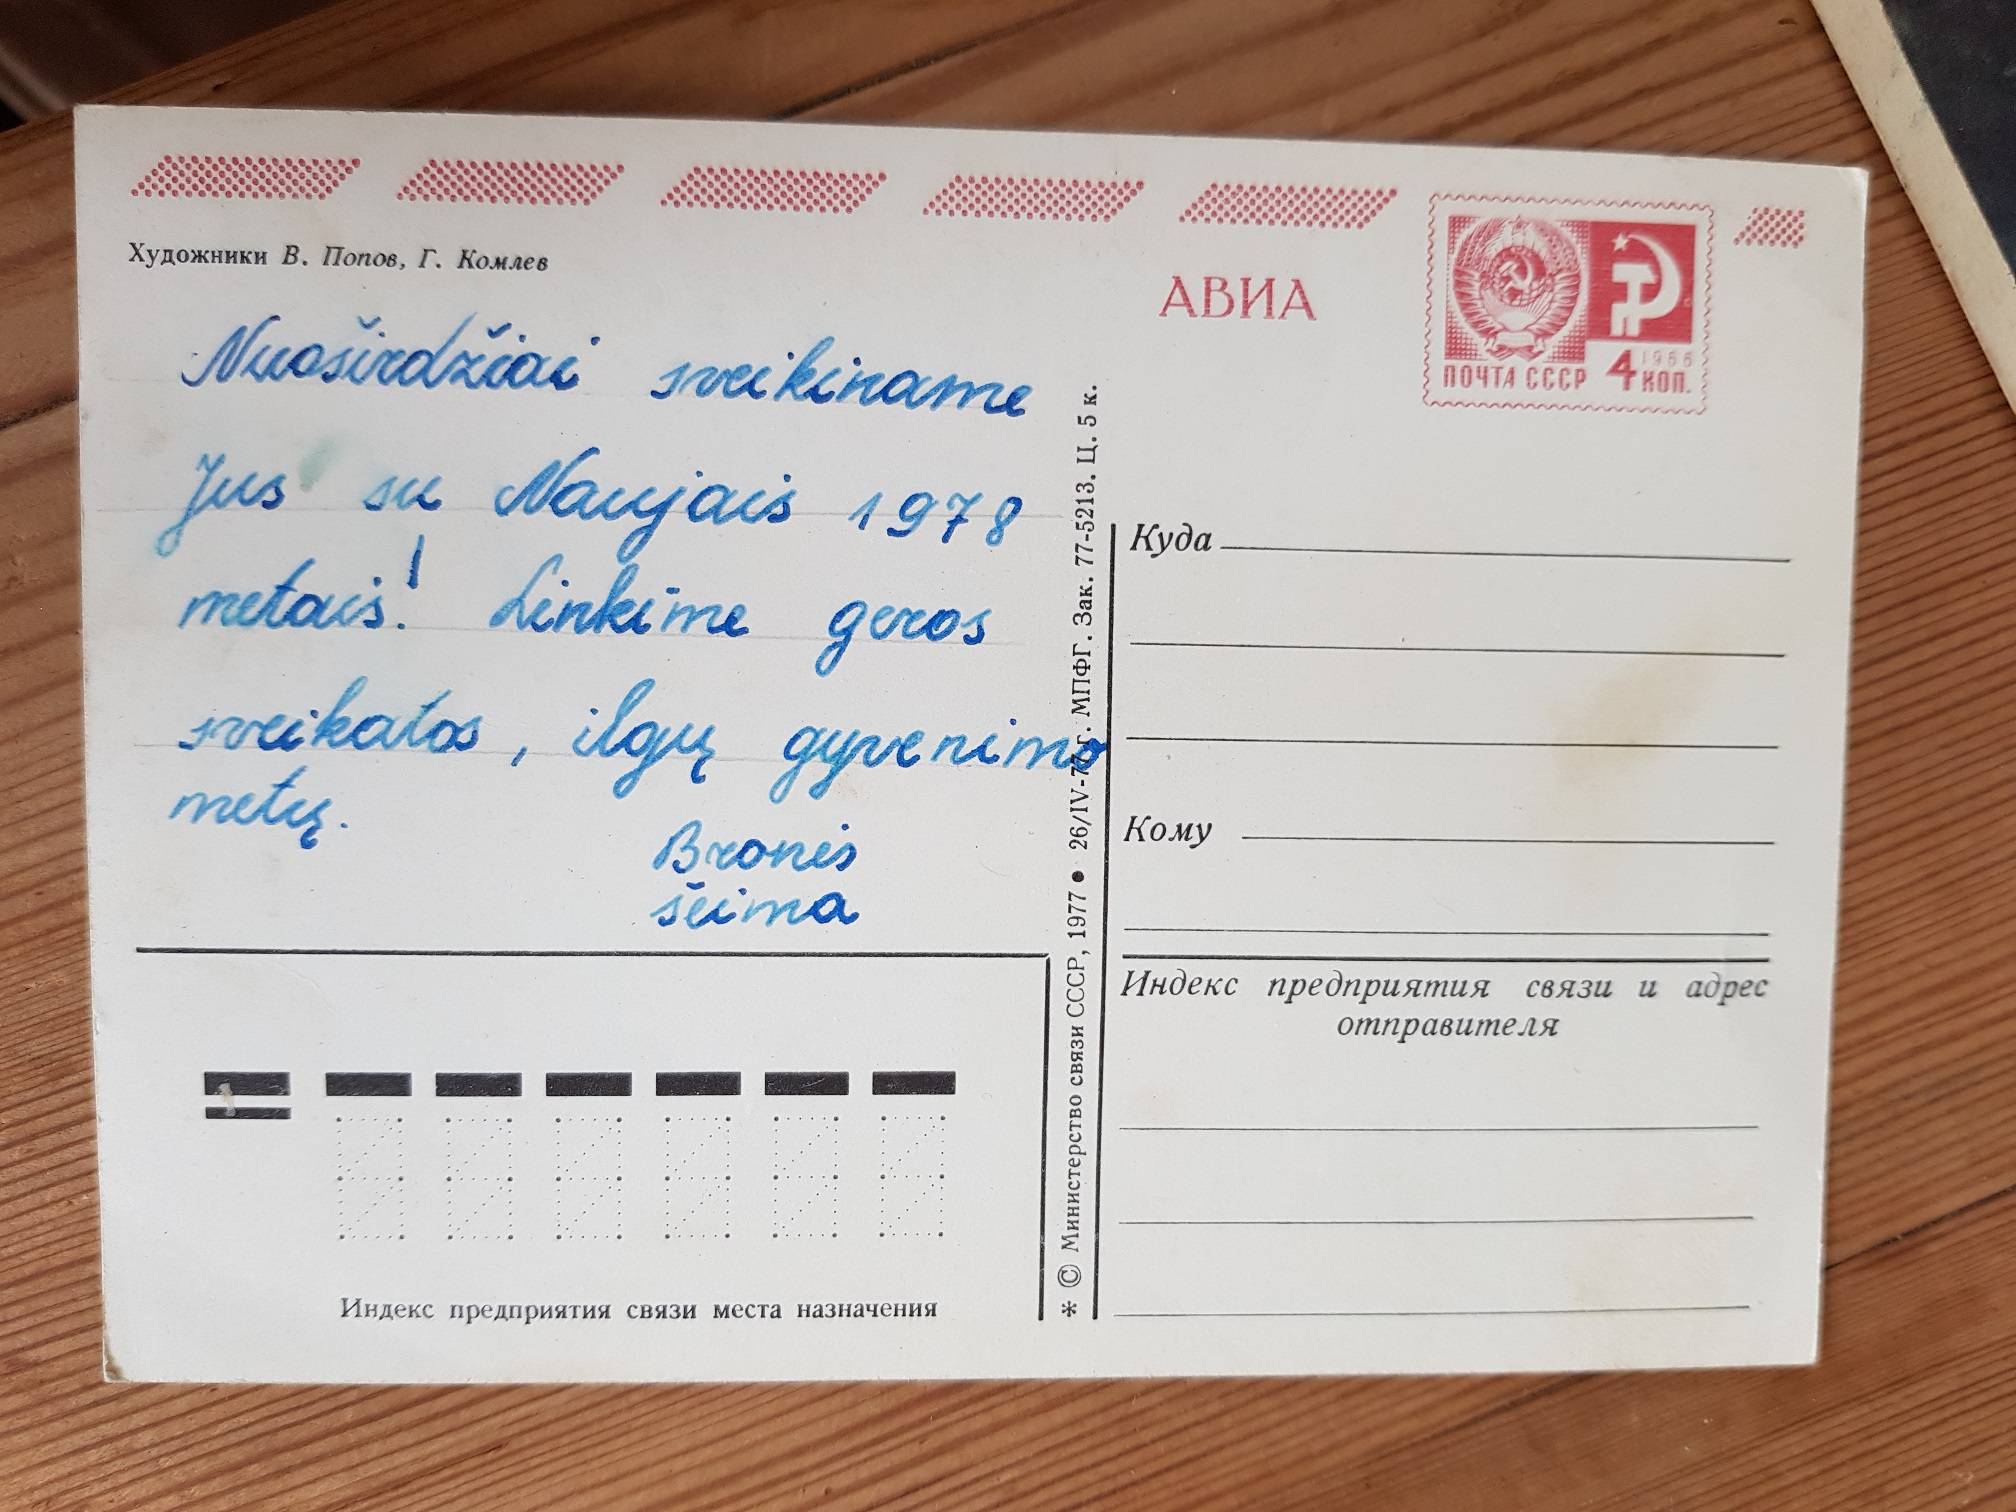 Художники В. Попов, Г. Комлев
Nuoširdžiai sveikiname
Jus su Naujais 1978
metais! Linkime geros
sveikatos, ilgų gyvenimo
metų.
Bronės
šeima
Индекс предприятия связи места назначения
* © Министерство связи СССР, 1977 ● 26/IV-77 г. МПФГ. Зак. 77-5213. Ц. 5 к.
АВИА
1966
ПОЧТА СССР 4 КОП.
Куда
Кому
Индекс предприятия связи и адрес
отправителя